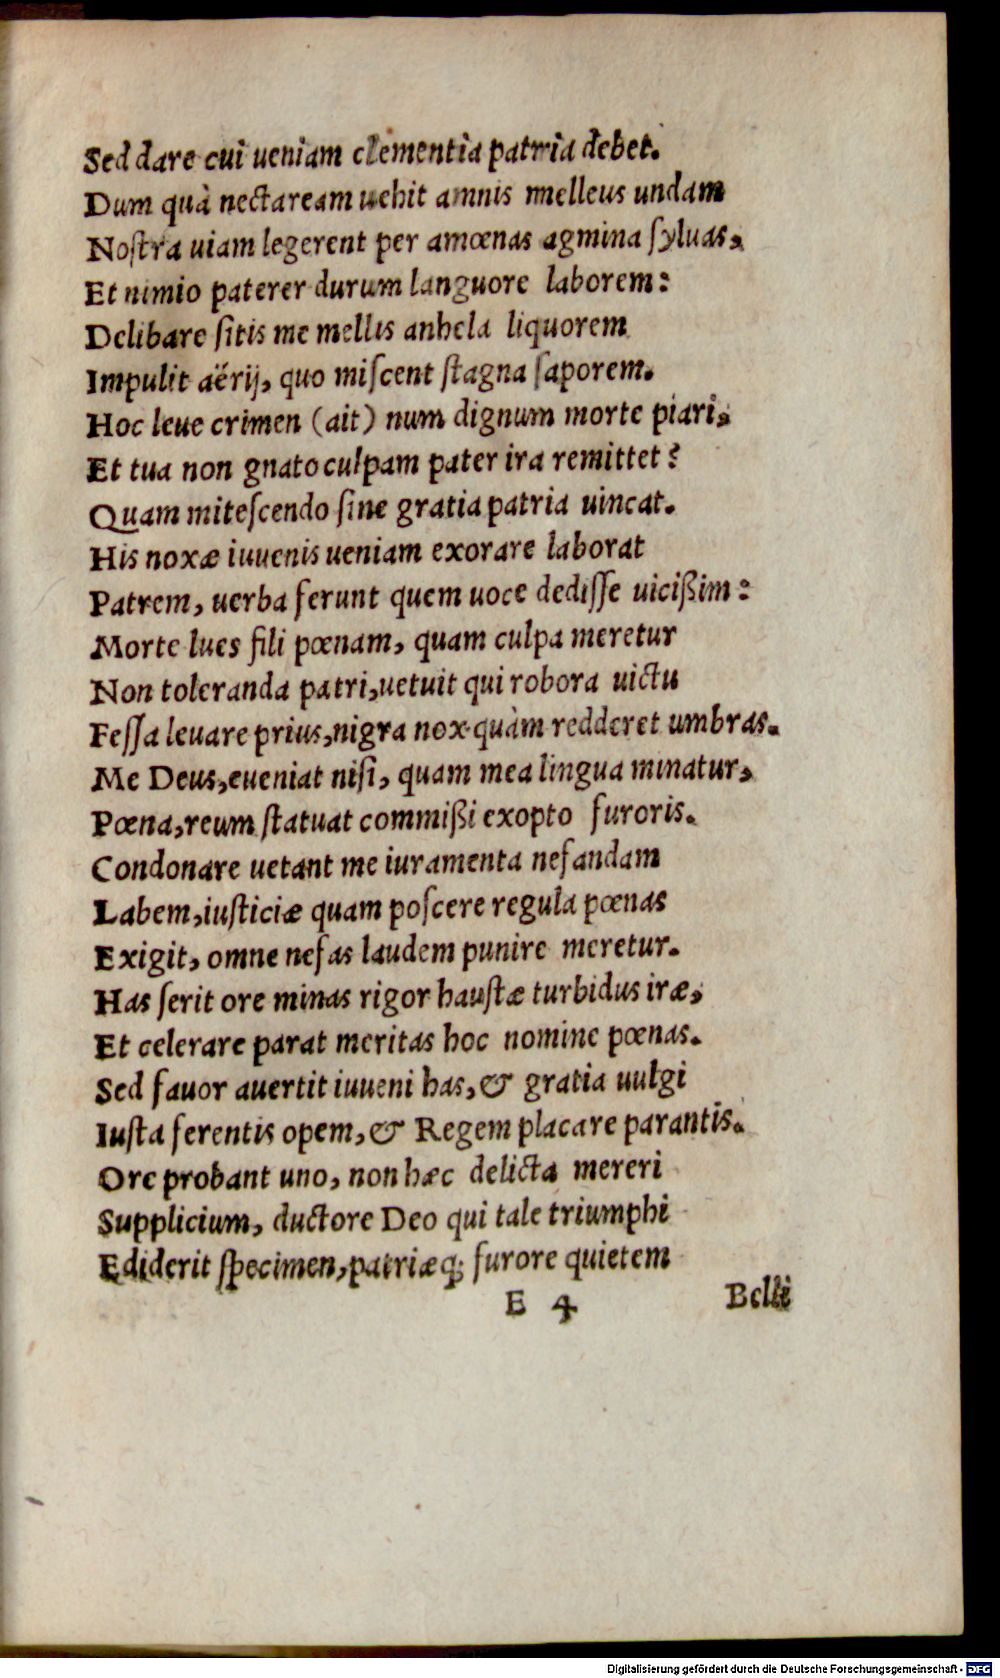 Sed dare cui ueniam clementia patria debet.
Dum quà nectaream uehit amnis melleus undam
Noſtra uiam legerent per amœnas agmina ſyluas,
Et nimio paterer durum languore laborem:
Delibare ſitis me mellis anhela liquorem
Impulit aërij, quo miſcent ſtagna ſaporem.
Hoc leue crimen (ait) num dignum morte piari,
Et tua non gnato culpam pater ira remittet?
Quam miteſcendo ſine gratia patria uincat.
His noxæ iuuenis ueniam exorare laborat
Patrem, uerba ferunt quem uoce dediſſe uicißim:
Morte lues fili pœnam, quam culpa meretur
Non toleranda patri, uetuit qui robora uictu
Feſſa leuare prius, nigra nox quàm redderet umbras.
Me Deus, eueniat niſi, quam mea lingua minatur,
Pœna, reum ſtatuat commißi exopto furoris.
Condonare uetant me iuramenta nefandam
Labem, iuſticiæ quam poſcere regula pœnas
Exigit, omne nefas laudem punire meretur.
Has ſerit ore minas rigor hauſtæ turbidus iræ,
Et celerare parat meritas hoc nomine pœnas.
Sed fauor auertit iuueni has, & gratia uulgi
Iuſta ferentis opem, & Regem placare parantis.
Ore probant uno, non hæc delicta mereri
Supplicium, ductore Deo qui tale triumphi
Ediderit ſpecimen, patriæq; furore quietem
E 4 Belli
Digitalisierung gefördert durch die Deutsche Forschungsgemeinschaft - DFG